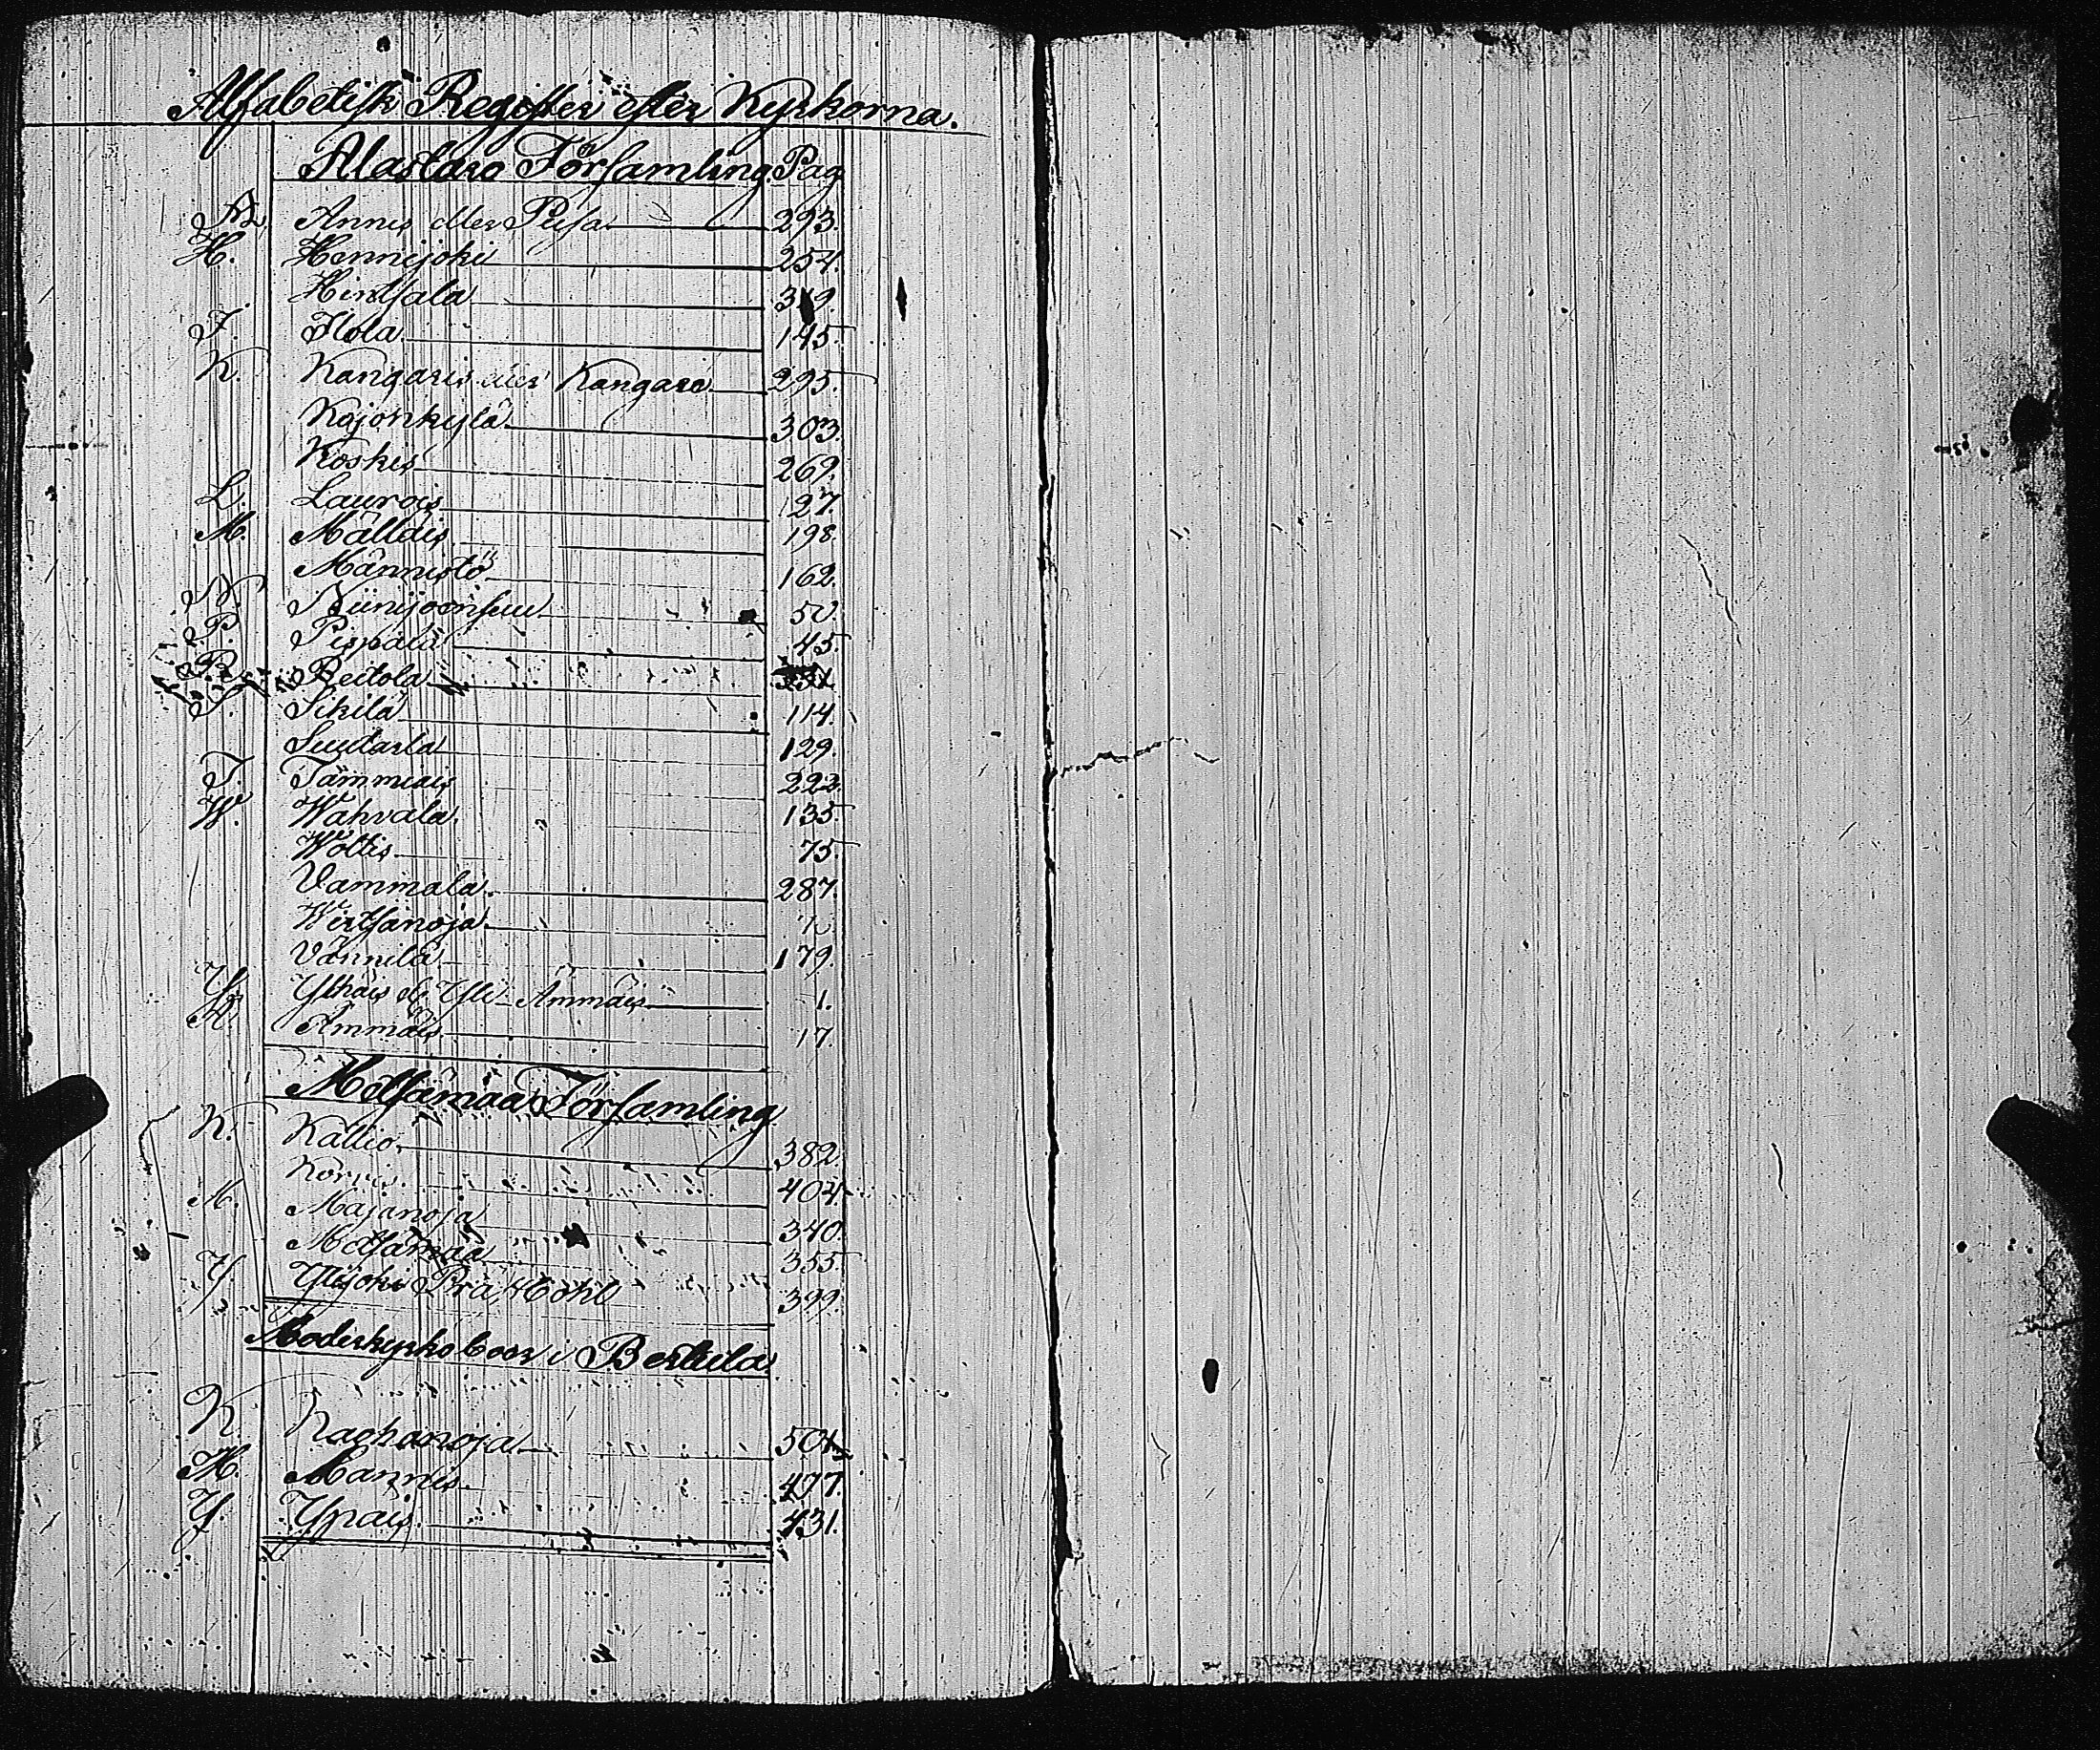 Alfabetisk Register efter Kyrkorna.
Alastaro Församling. Pag
A. Annis eller Pusa 293.
H. Hennijoki 254.
Hirsfala 319.
I. Ilola 145.
K. Kangaris eller Kangare 295.
Kojonkylä 303.
Koskis 269.
L. Laurois 27.
M. Mälläis 198.
Männistö 162.
N. Niinijoensuu 50.
P. Pispalä 45.
R. Reitola
S. Sikilä 114.
Suutarla 129.
T. Tämmiäis 222.
W. Wahvala. 135.
Wöltis 75.
Vammala. 287.
Wirtsanoja.
Vännilä 179.
Y. Ylhäis el. Yli-Ämmäis 1.
Ä. Ämmäis 17.
Metsämaa Församling
K. Kallio. 382.
Körvis. 404.
M. Majanoja 340.
Metsämaa 355.
Y. Ylijoki 399.
Moderkyrkoboer i Bertula
K. 501
M. Mannis. 477.
Y. Ypäis. 431.